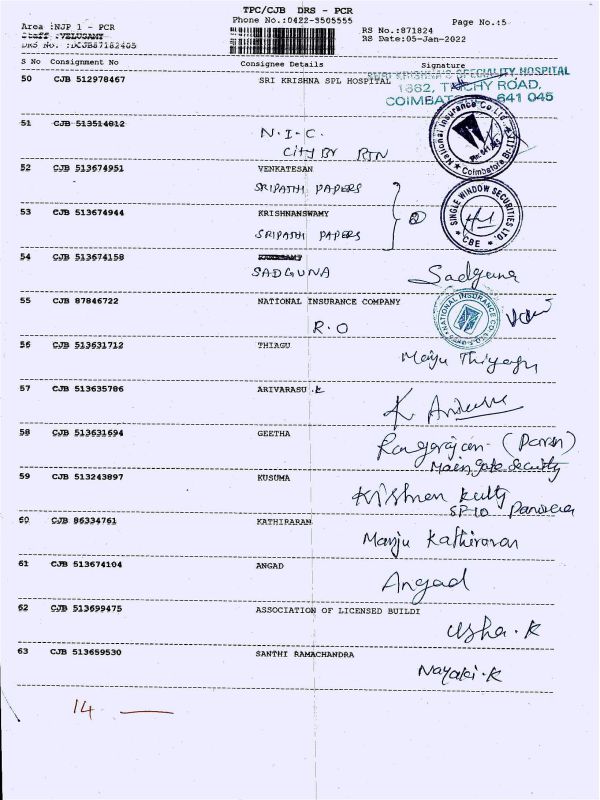 TPC/CJB DRS - PCR
Phone No.:0422-3505555
Page No.:5
Area :NJP 1 - PCR
Staff :VELUGAMY
DRS No. :DCJB87182405
RS No.:871824
RS Date:05-Jan-2022
S No Consignment No Consignee Details Signature
50 CJB 512978467 SRI KRISHNA SPL HOSPITAL
SPECIALITY HOSPITAL
1862, TRICHY ROAD,
COIMBATORE 641 045
51 CJB 513514812
N.I.C.
City Br
National Insurance Co Ltd
Coimbatore
52 CJB 513674951 VENKATESAN
SRIPATHI PAPERS
SINGLE WINDOW SECURITIES LTD.
CBE
53 CJB 513674944 KRISHNANSWAMY
SRIPATHI PAPERS
2
54 CJB 513674158
SADGUNA Sadguna
55 CJB 87846722 NATIONAL INSURANCE COMPANY
R.O
NATIONAL INSURANCE CO LTD
56 CJB 513631712 THIAGU
57 CJB 513635786 ARIVARASU .K
58 CJB 513631694 GEETHA
Rangarajan -
Main gate Security
59 CJB 513243897 KUSUMA
Krishnan kutty
60 CJB 86334761 KATHIRARAN
Manju Kathiravan
61 CJB 513674104 ANGAD
Angad
62 CJB 513699475 ASSOCIATION OF LICENSED BUILDI
Usha.K
63 CJB 513659530 SANTHI RAMACHANDRA
Nayaki.K
14 —